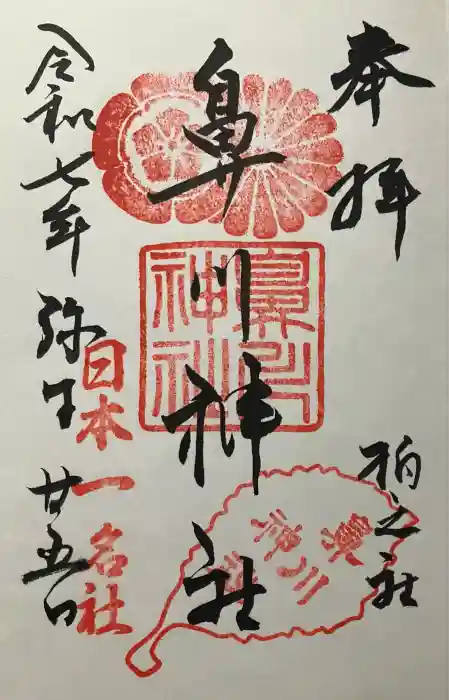 奉拝
柏之社
鼻川神社
鼻川
神社
鼻川
神社
日本一名社
令和七年弥生廿五日